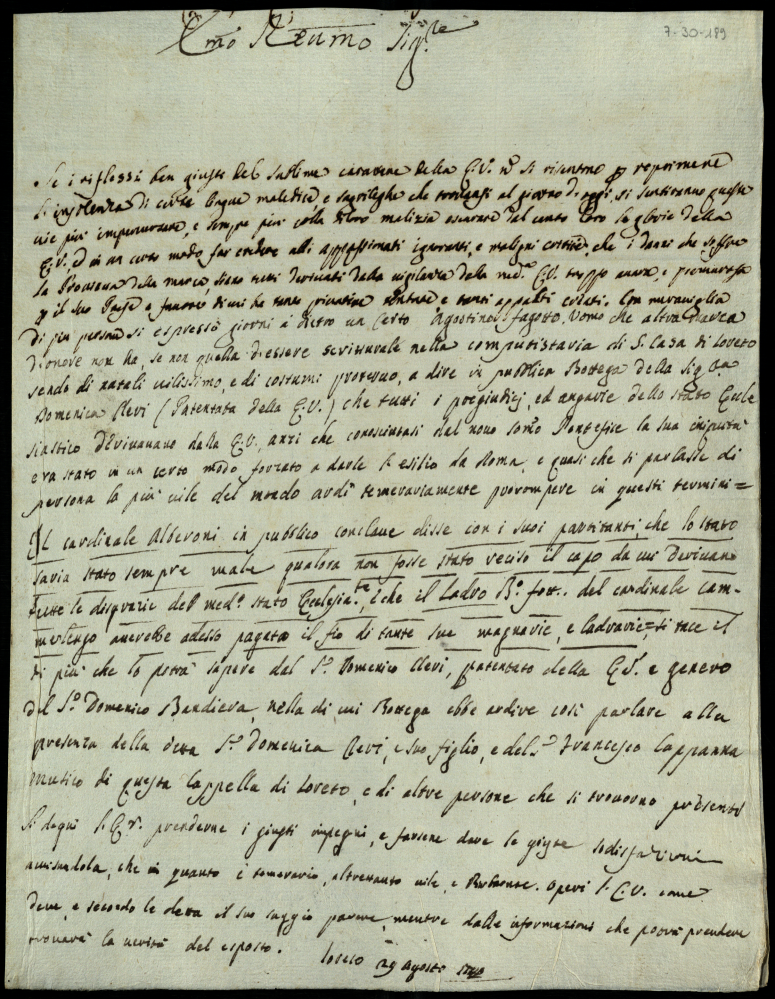 7-30-189
Emo Reumo Sig.re
Se i riflessi ben giusti del sublime carattere della E.V. nō si risentono p reprimere
l'insolenza di certe lingue maledice, e sacrileghe che trovansi al giorno di oggi, si sentiranno queste
vie più imperversare, e sempre più colla loro malizia oscurare dal canto loro la gloria della
E.V. ed in un certo modo far credere alli appassionati ignoranti, e maligni che i danni che soffre
la Provincia della marca, siano tutti derivati dalla vigilanza della med.a E.V. troppo amore, e premurosa
p il suo Paese a favore di cui ha tante privative tentate e tanti appalti evitati. Con meraviglia
di più persone si espresse giorni a dietro un certo Agostino Fagotto, Uomo che altra marca
d'onore non ha, se non quella d'essere scritturale nella computistaria di S. Casa di Loreto
sendo di natali vilissimo, e di costumi protervo, a dire in pubblica Bottega della Sig.ra
Domenica Clevi (Patentata della E.V.) che tutti i pregiudizj, ed angarie dello stato Eccle
siastico derivavano dalla E.V. anzi che conosciutasi dal novo somo Pontefice la sua
era stato in un certo modo forzato a darle l'esilio da Roma, e quasi che si parlasse di
persona la più vile del mondo ardì temerariamente prorompere in questi termini =
Il cardinale Alberoni in pubblico conclave disse con i suoi partitanti, che lo stato
saria stato sempre male qualora non fosse stato ucciso il capo da cui derivano
tutte le disgrazie del med.o stato Ecclesia.te, e che il Ladro B. del cardinale Cam-
merlengo averebbe adesso pagato il fio di tante sue magnarie, e ladrarie = si tace il
di più che lo potrà sapere dal S.r Domenico Clevi, patentato della E.V. e genero
del S.r Domenico Bandiera, nella di cui Bottega ebbe ardire così parlare alla
presenza della detta S.ra Domenica Clevi, e suo figlio, e del S.r Francesco Cappanna
musico di questa Cappella di Loreto, e di altre persone che si trovorno presenti
Si degni l'E.V. prenderne i giusti impegni, e farsene dare le giuste sodisfazioni
avvisandola, che in quanto è temerario, altretanto vile, e Birbante. Operi l'E.V. come
deve, e secondo le detta il suo saggio parere, mentre dalle informazioni che potrà prendere
trovarà la verità del esposto. Loreto 29 Agosto 1740